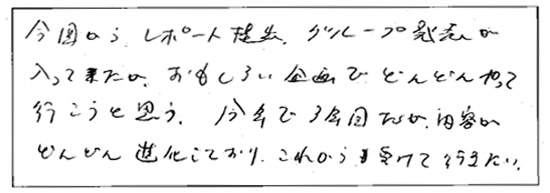 今回から、レポート提出、グループ発表が
入って来たが、おもしろい企画でどんどんやって
行こうと思う。今年で3年目だが、内容が
どんどん進化しており、これからも受けて行きたい。